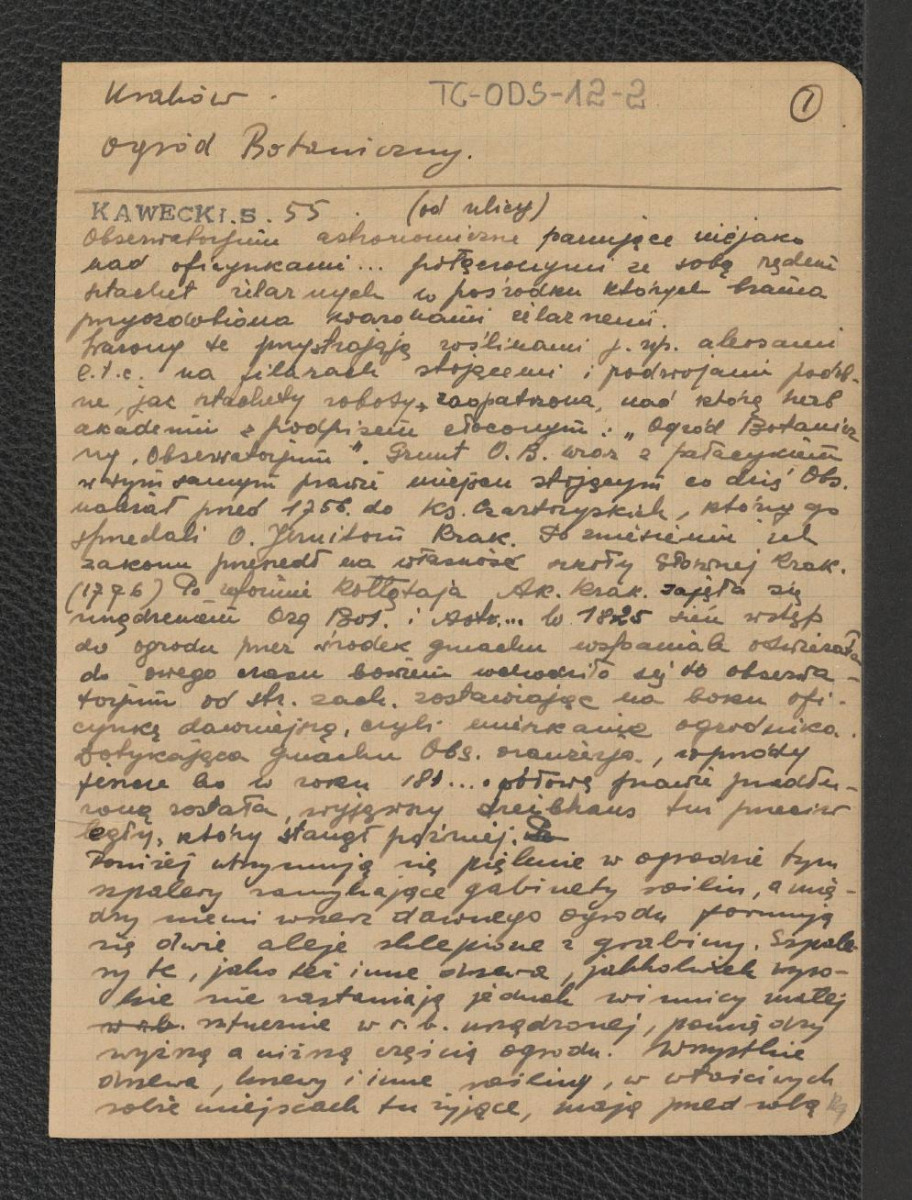 Kraków.
TG-ODS-12-2
1
Ogród Botaniczny.
KAWECKI.S. 55. (od ulicy)
Obserwatorjum astronomiczne panujące niejako
nad oficynkami... połączonymi ze sobą rzędem
sztachet żelaznych w pośrodku których brama
przyozdobiona wazonami żelaznemi.
Wazony te przystrajają roślinami j. np. aloesami
e.t.c. na filarach stojącemi i podwojami podob-
ne, jak sztachety roboty zaopatrzona, nad którą herb
akademii z podpisem złoconym: „Ogród Botanicz
ny, Obserwatorjum". Grunt O. B. wraz z pałacykiem
w tym samym prawie miejscu stojącym co dziś Obs.
należał przed 1756. do Ks. Czartoryskich, którzy go
sprzedali O. Jezuitom Krak. Po zniesieniu ich
zakonu przeszedł na własność szkoły Głównej Krak.
(1776) Po reformie Kołłątaja Ak. Krak. zajęła się
urządzeniem Og Bot. i Astr... W 1825 sień wstęp
do ogrodu przez środek gmachu wspaniale otwierała
do owego czasu bowiem wchodziło się do obserwa-
torjum od str. zach. zostawiając na boku ofi-
cynkę dawniejszą, czyli mieszkanie ogrodnika.
Dotykająca gmachu Obs. oranżerja,
teraz bo w roku 181... połową prawie przedłu-
żoną została, wyjąwszy treibhaus tui przeciw
legły, który stanął później.
Poniżej utrzymują się pięknie w ogrodzie tym
szpalery zamykające gabinety roślin, a mię-
dzy niemi wszerz dawnego ogrodu formują
się dwie aleje sklepione z grabiny. Szpale-
ry te, jako też inne drzewa, jakkolwiek wyso-
kie nie zasłaniają jednak winnicy małej
sztucznie w r. b. urządzonej, pomiędzy
wyższą a niższą częścią ogrodu. Wszystkie
drzewa, krzewy i inne rośliny, w właściwych
sobie miejscach tu żyjące, mają przed sobą